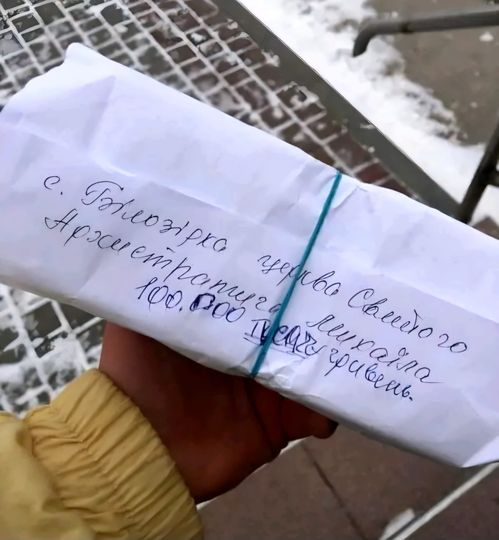 с. Білозірка церква Святого
Архистратига Михаїла
100.000 тисяч гривень.